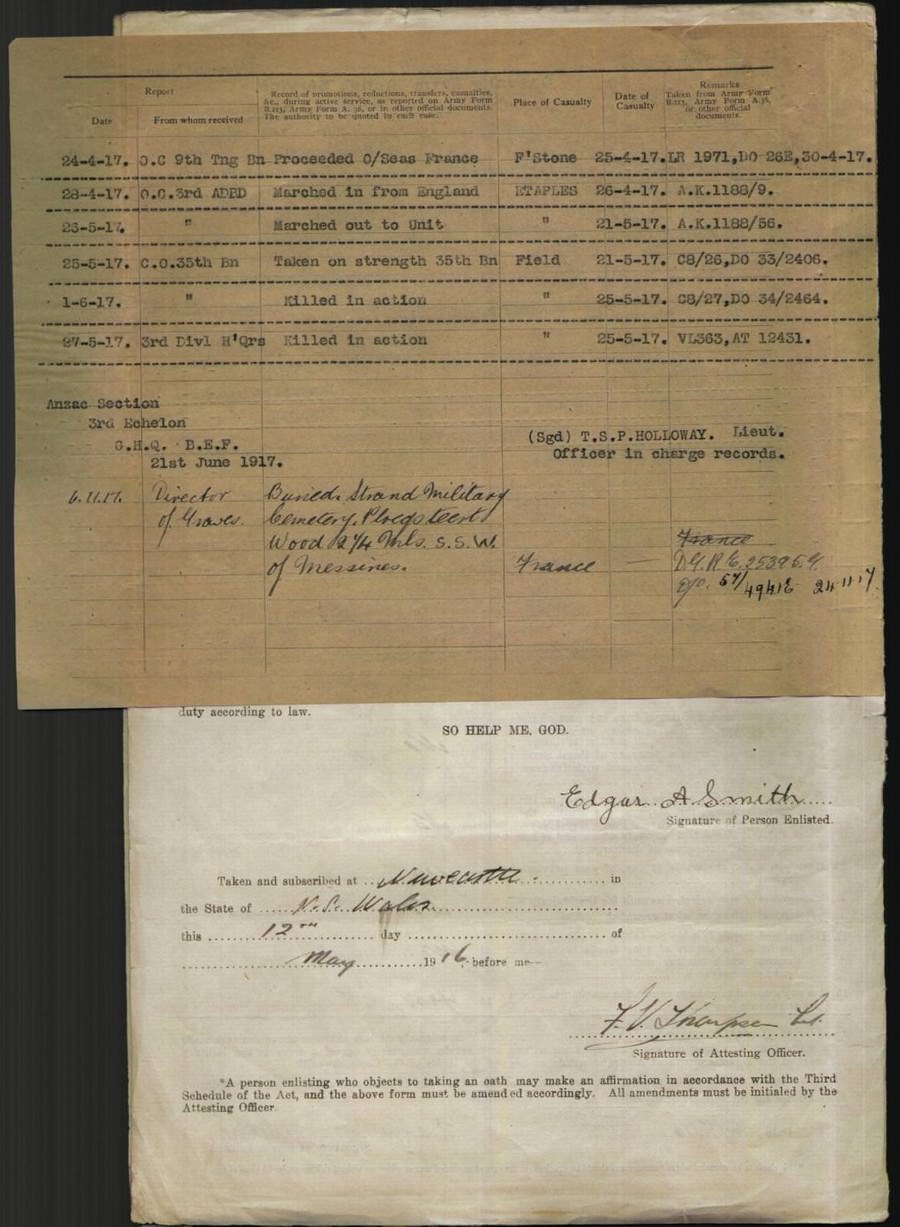 Report
Record of promotions, reductions, transfers, casualties, &c., during active service, as reported on Army Form B.213, Army Form A. 36, or in other official documents. The authority to be quoted in each case.
Place of Casualty
Date of Casualty
Remarks
Taken from Army Form B.213, Army Form A.36, or other official documents.
Date
From whom received
24-4-17. O.C 9th Tng Bn Proceeded O/Seas France F'Stone 25-4-17. LR 1971,DO 26E,30-4-17.
28-4-17. O.C.3rd ADBD Marched in from England ETAPLES 26-4-17. A.K.1188/9.
23-5-17. " Marched out to Unit " 21-5-17. A.K.1188/56.
25-5-17. C.O.35th Bn Taken on strength 35th Bn Field 21-5-17. C8/26,DO 33/2406.
1-6-17. " Killed in action " 25-5-17. C8/27,DO 34/2464.
27-5-17. 3rd Divl H'Qrs Killed in action " 25-5-17. VL363,AT 12431.
Anzac Section
3rd Echelon
G.H.Q. B.E.F.
21st June 1917.
(Sgd) T.S.P.HOLLOWAY. Lieut.
Officer in charge records.
6.11.17. Director Buried. Strand Military
of Graves. Cemetery. Ploegsteert
Wood 2¼ Mls. S.S.W. France
of Messines. France
24.11.17
duty according to law.
SO HELP ME, GOD.
Edgar A Smith
Signature of Person Enlisted.
Taken and subscribed at Newcastle in
the State of N.S. Wales
this 12th day of
May 1916 before me—
F.V. Thompson Lt.
Signature of Attesting Officer.
*A person enlisting who objects to taking an oath may make an affirmation in accordance with the Third
Schedule of the Act, and the above form must be amended accordingly. All amendments must be initialed by the
Attesting Officer.